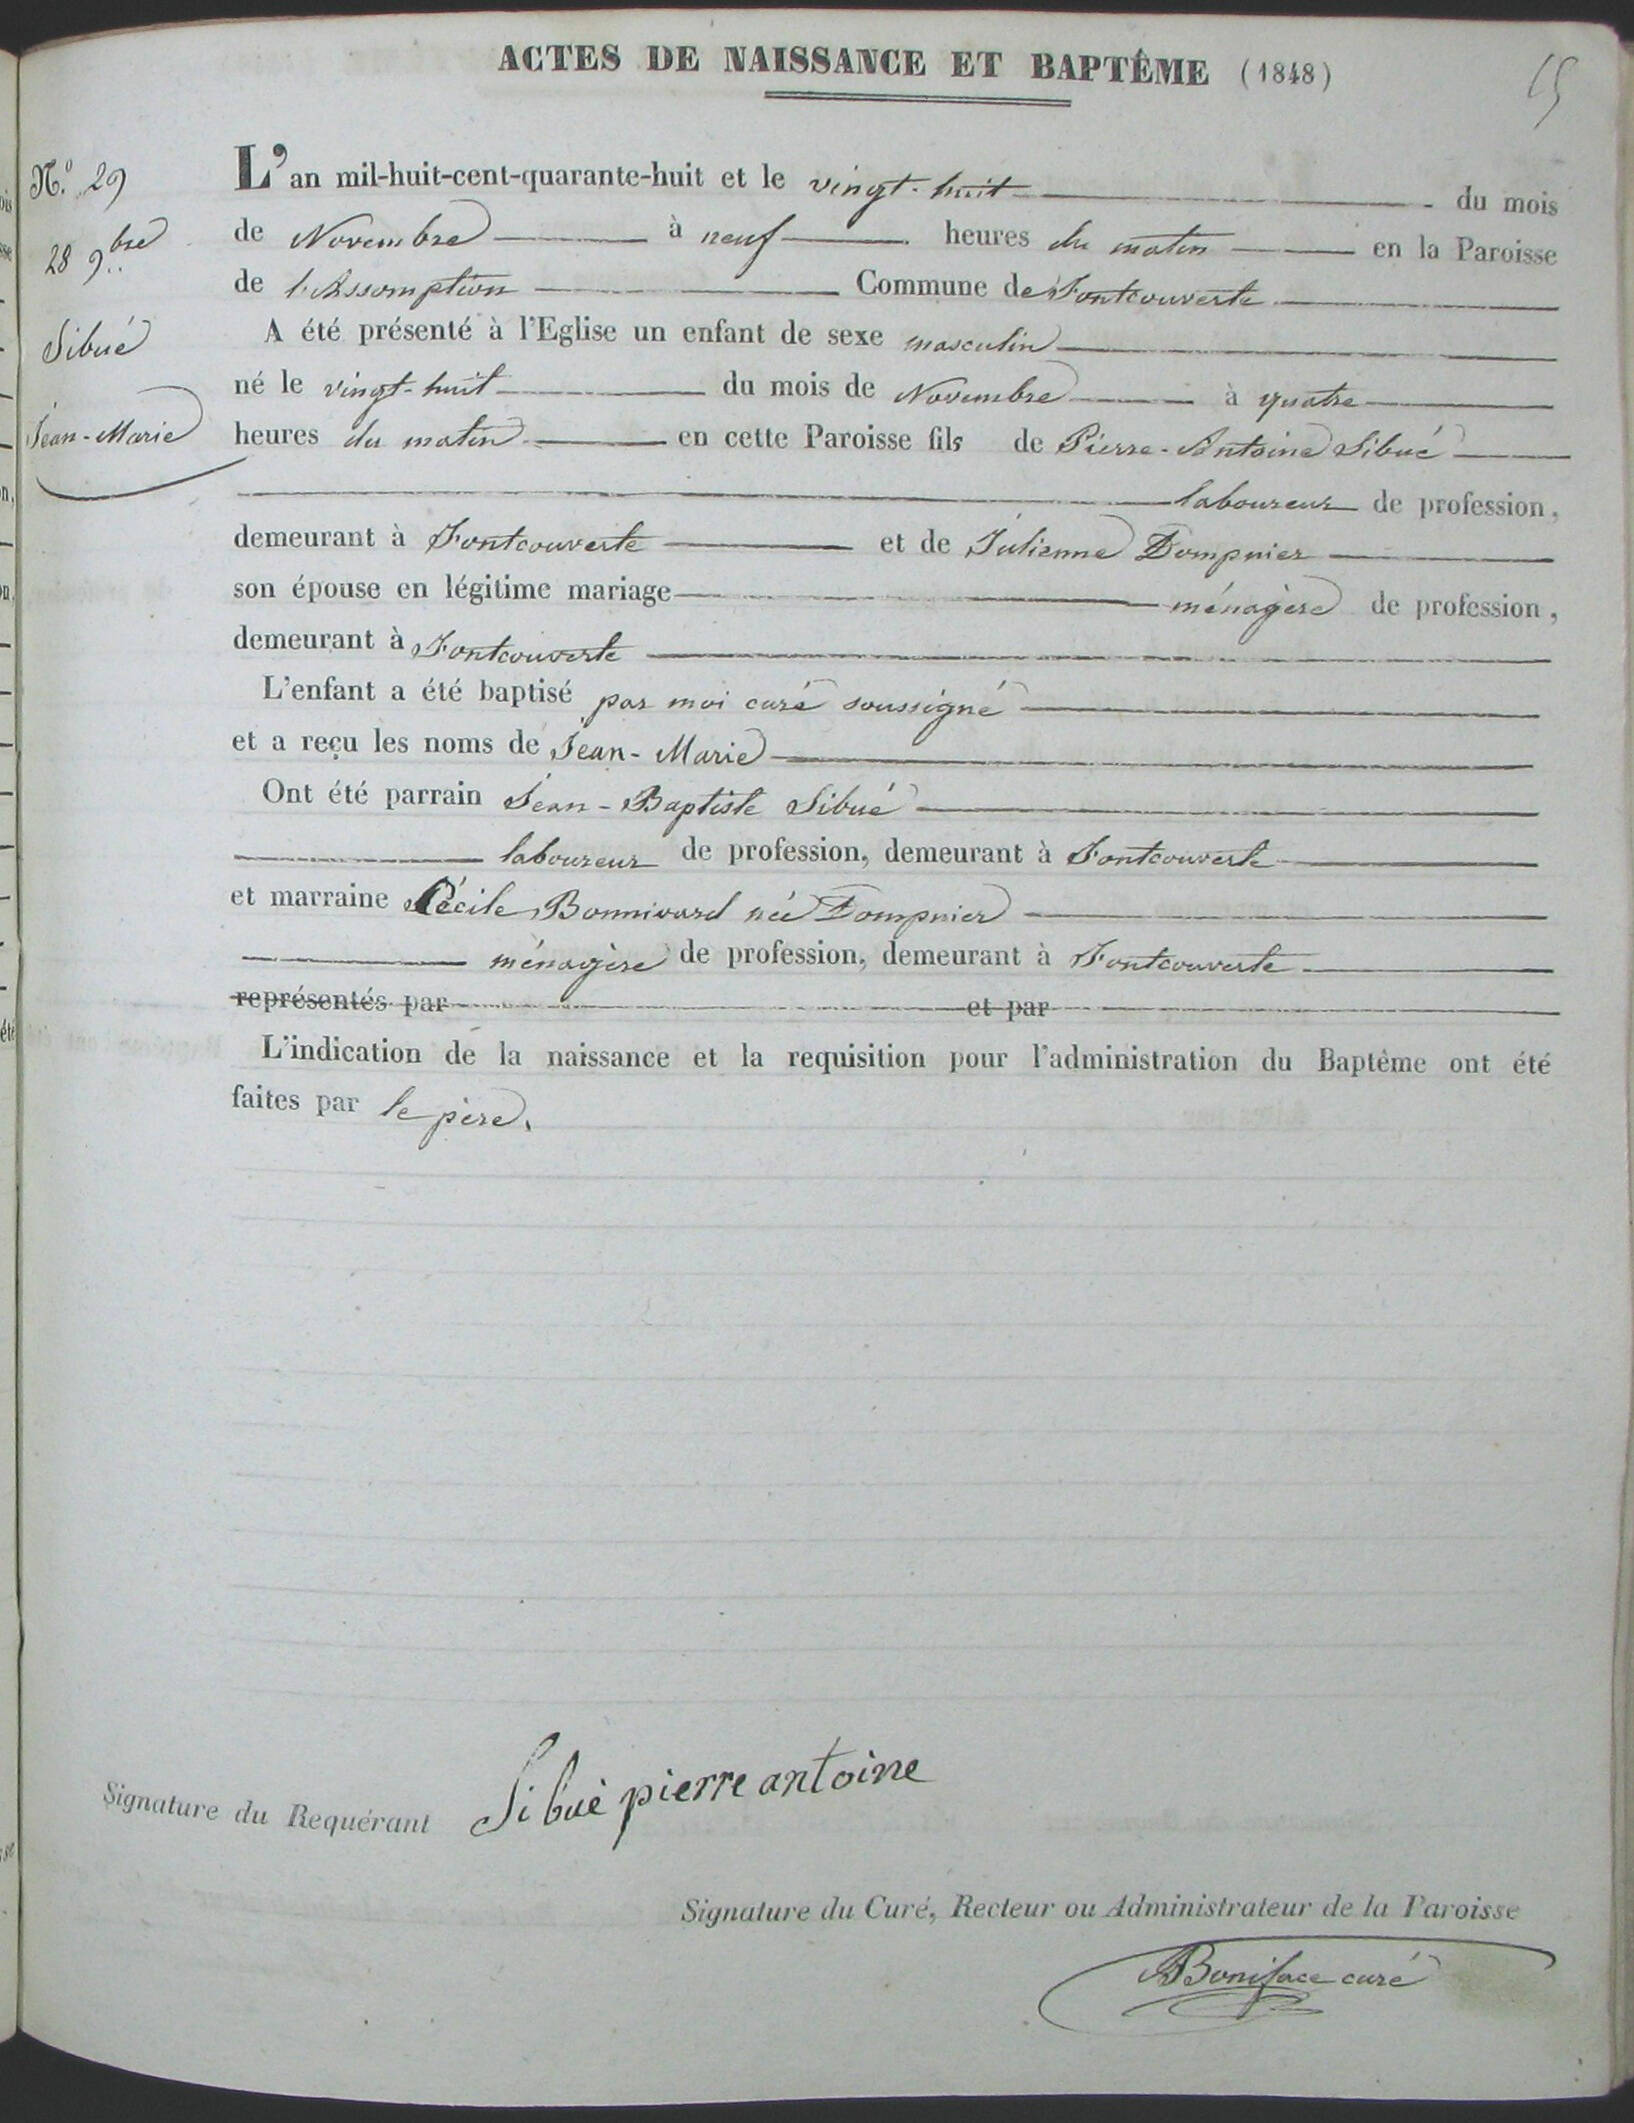 ACTES DE NAISSANCE ET BAPTÊME (1848)
15
N.º 29
28 9.bre
Sibué
Jean-Marie
L'an mil-huit-cent-quarante-huit et le vingt-huit du mois
de Novembre à neuf heures du matin en la Paroisse
de l'Assomption Commune de Fontcouverte
A été présenté à l'Eglise un enfant de sexe masculin
né le vingt-huit du mois de Novembre à quatre
heures du matin en cette Paroisse fils de Pierre-Antoine Sibué
laboureur de profession,
demeurant à Fontcouverte et de Julienne Dompnier
son épouse en légitime mariage ménagère de profession,
demeurant à Fontcouverte
L'enfant a été baptisé par moi curé soussigné
et a reçu les noms de Jean-Marie
Ont été parrain Jean-Baptiste Sibué
laboureur de profession, demeurant à Fontcouverte
et marraine Cécile Bonnivard née Dompnier
ménagère de profession, demeurant à Fontcouverte
représentés par et par
L'indication de la naissance et la requisition pour l'administration du Baptême ont été
faites par le père.
Signature du Requérant Sibué pierre antoine
Signature du Curé, Recteur ou Administrateur de la Paroisse
Boniface curé